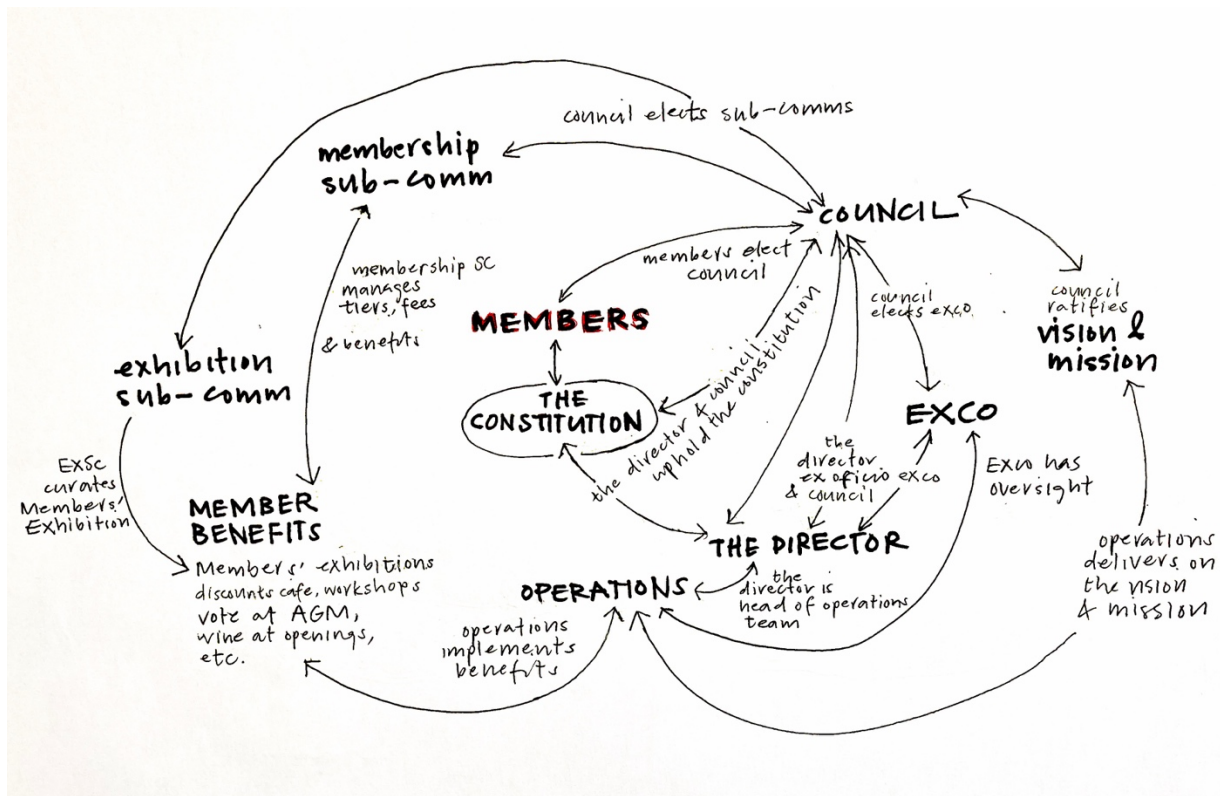 council elects sub-comms
membership
sub-comm
COUNCIL
members elect
council
membership SC
manages
tiers, fees
& benefits
MEMBERS
council
elects exco
council
ratifies
vision &
mission
exhibition
sub-comm
THE
CONSTITUTION
the director & council
uphold the constitution
EXCO
the
director
ex oficio exco
& council
Exco has
oversight
ExSc
curates
Members'
Exhibition
MEMBER
BENEFITS
Members' exhibitions
discounts cafe, workshops
vote at AGM,
wine at openings,
etc.
THE DIRECTOR
OPERATIONS
the
director is
head of operations
team
operations
implements
benefits
operations
delivers on
the vision
& mission